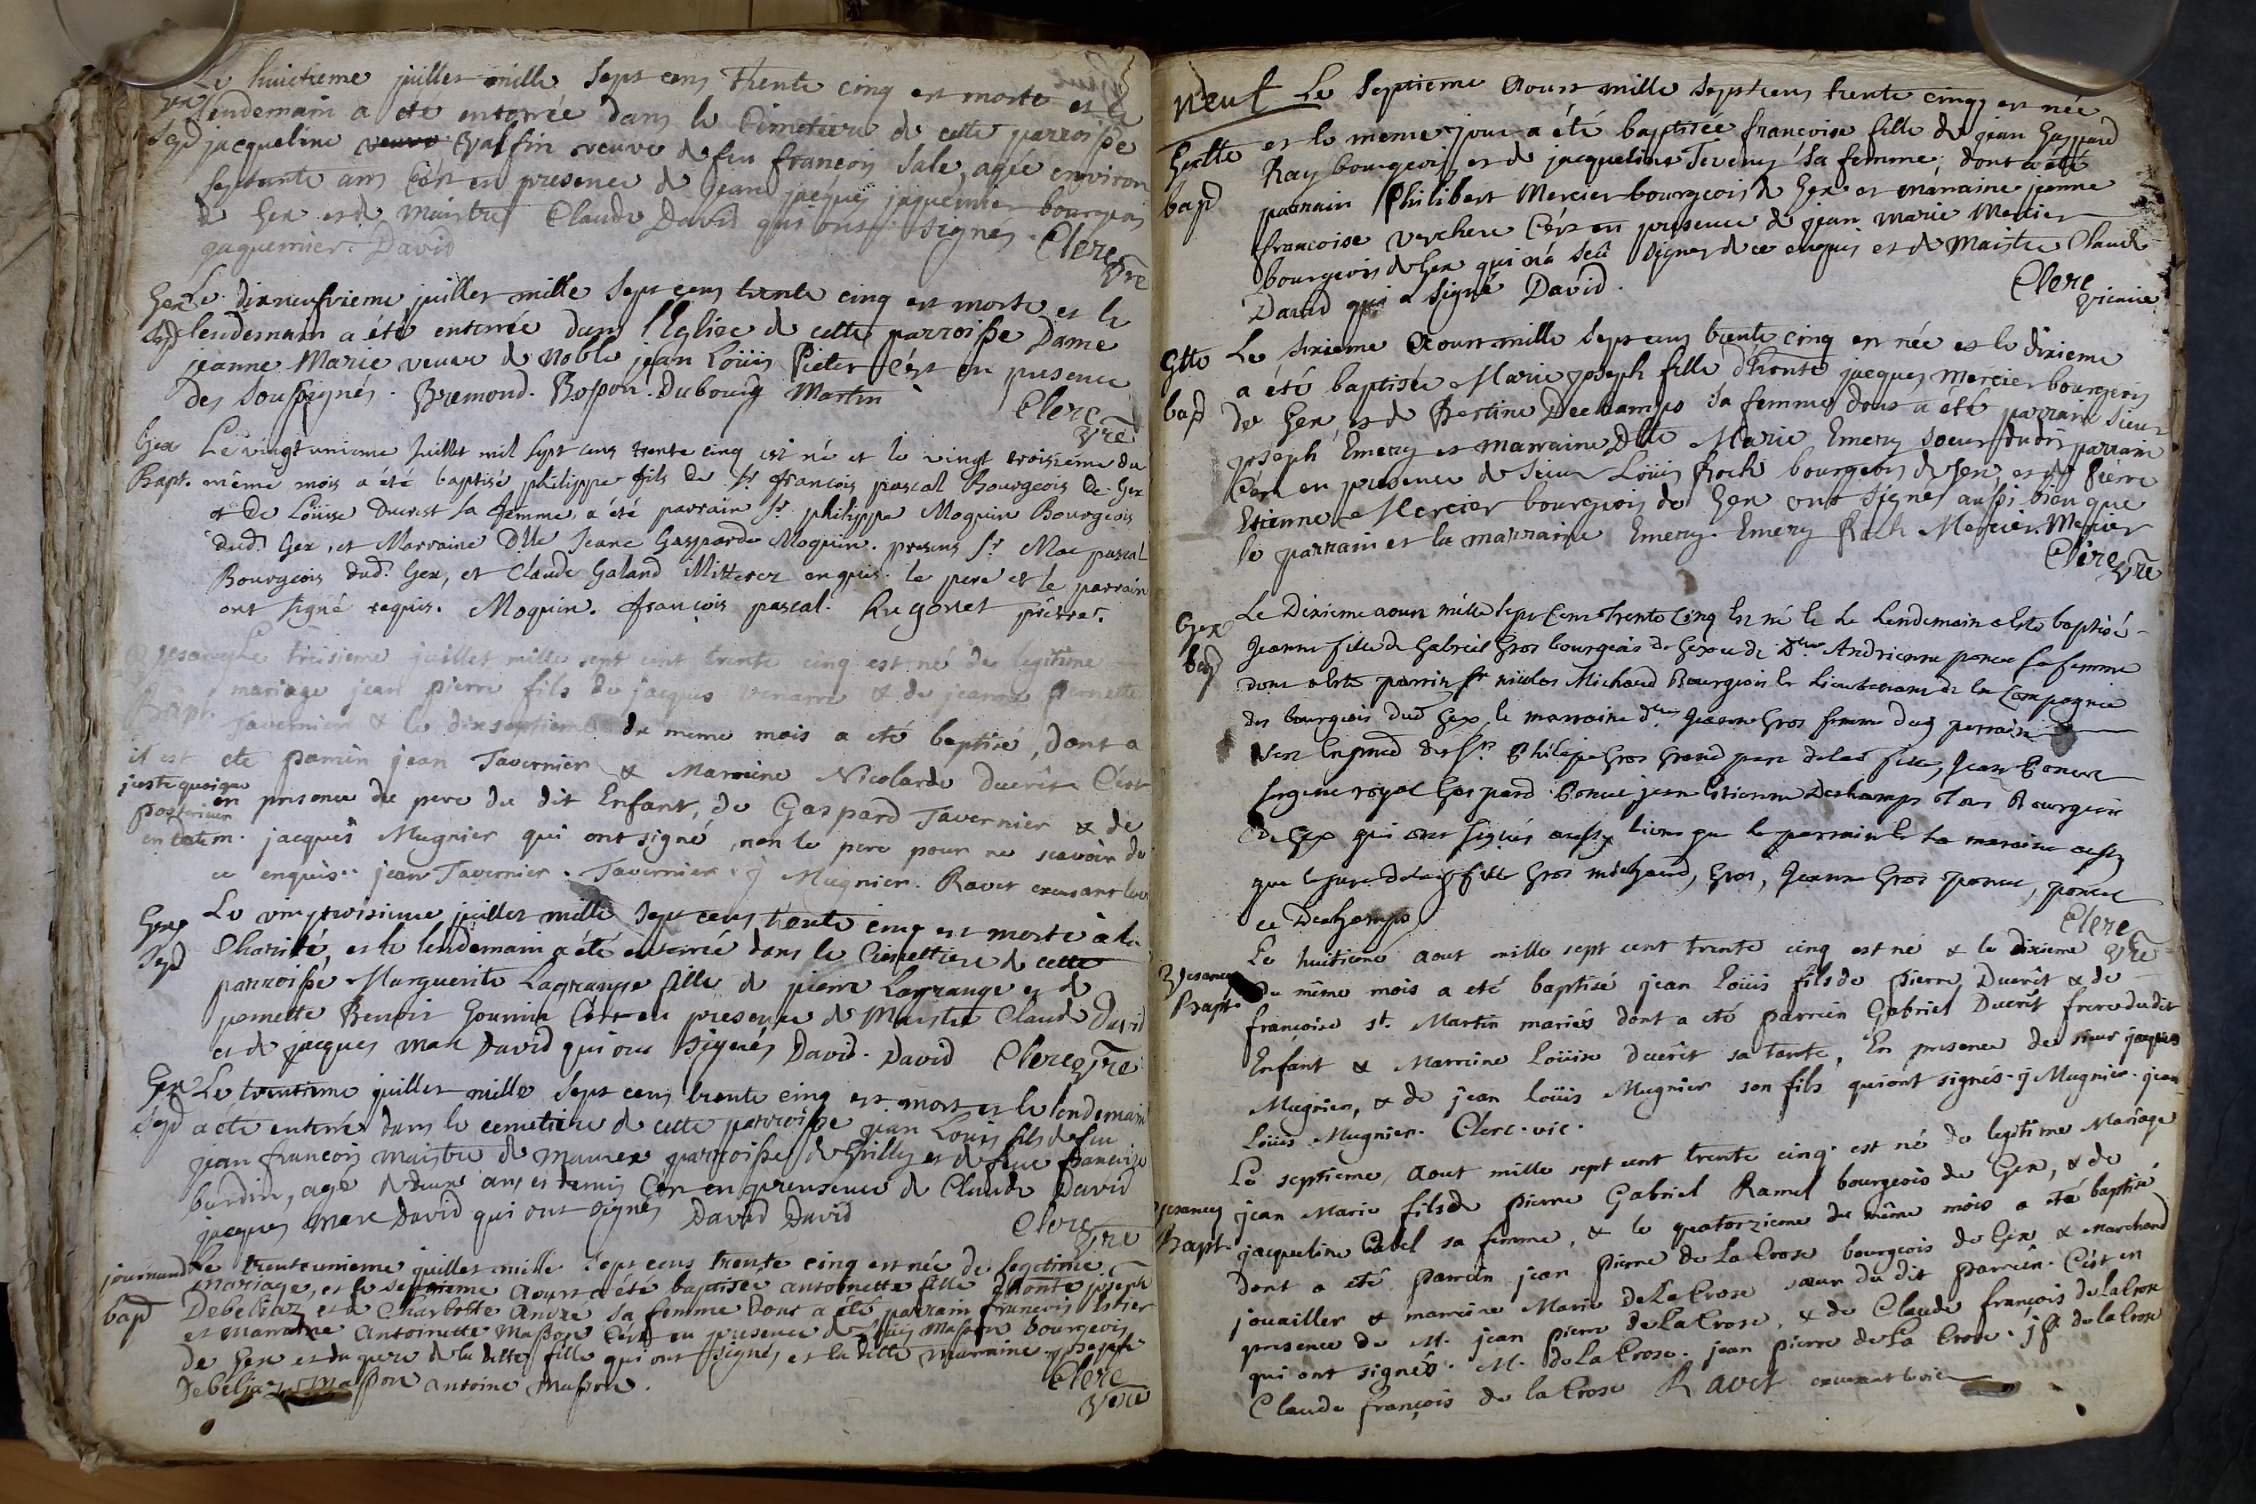 Le huictieme juillet mille sept cens trente cinq est morte et le
Gex lendemain a ete enterrée dans le Cimetiere de cette parroisse
sep jacqueline veuve Balffin veuve de feu francois Sale, agée environ
septante ans C'est en presence de jean jacques jaquemier bourgeois
de Gex et de Maistre Claude David qui ont signés.
jaquemier. David Clerc vre
Gex Le dixneufvieme juillet mille sept cens trente cinq est morte et le
sep lendemain a été enterrée dans l'Eglise de cette parroisse Dame
jeanne Marie veuve de Noble jean Loüis Pictet C'est en presence
des soussignés. Bremond. Bosson. Dubourg Martin
Clerc vre
Gex Le vingt unieme Juillet mil sept cens trente cinq est né et le vingt troisiéme du
Bapt. même mois a été baptisé philippe fils de Sr. francois pascal Bourgeois de Gex
et de Loüise Ducrest sa femme, a été parrain Sr. philippe Moquin Bourgeois
dud. Gex, et Marraine Dlle Jeane Gasparde Moquin. presens Sr. Mac pascal
Bourgeois dud. Gex, et Claude Galand Mitterez enquis. le pere et le parrain
ont signé requis. Moquin. françois pascal. Rugonet prêtre.
gesancy Le treisieme juillet mille sept cent trente cinq est né de legitime
mariage jean pierre fils de jacques & de jeanne pernette
Bapt. Tavernier & le dixseptieme du meme mois a eté baptisé, dont a
il est eté parrein jean Tavernier & Marreine Nicolarde Ducrêt C'est
juste quoique en presence du pere du dit Enfant, de Gaspard Tavernier & de
posterieur en datum. jacques Mugnier qui ont signé, non le pere pour ne scavoir de
ce enquis. jean Tavernier. Tavernier. j Mugnier. Ravet excusant levic
Gex Le vingtroisieme juillet mille sept cens trente cinq est morte à la
sep Charité, et le lendemain a été enterrée dans le Cimettiere de cette
parroisse Marguerite Lagrange fille de pierre Lagrange et de
pernette Benoit Gounin C'est en presence de Maistre Claude David
et de jacques Marc David qui ont signés David. David Clerc vre
Gex Le trentieme juillet mille sept cens trente cinq est mort et le lendemain
sep a été enterré dans le cemetiere de cette parroisse jean Louis fils de feu
jean francois maistre de maurex parroisse de Grilly et de feue francoise
burdin, agé de deux ans et demis C'est en presence de Claude David
jacques Marc David qui ont signés David David
Clerc vre
journand Le trenteunieme juillet mille sept cens trente cinq est née de legitime
mariage, et le septieme aoust a été baptisée antoinette fille d'honte joseph
bap Debeljaz et de Charlotte André sa femme dont a été parrain francois Estier
et marraine antoinette Masson C'est en presence de Loüis Masson bourgeois
de Gex et du pere de la ditte fille qui ont signés et la ditte marraine. joseph
Debeljaz Masson antoine Masson.
Clerc vre
neuf Le Septieme Aoust mille sept cens trente cinq est née
Gextte et le meme jour a été baptisée francoise fille de jean Gaspard
bap Ray bourgeois et de jacqueline Teveny sa femme, dont a été
parrain Philibert Mercier bourgeois de Gex et marraine jeanne
francoise Verchere C'est en presence de jean Marie Mercier
bourgeois de Gex qui n'a seû signer de ce enquis et de Maistre Claude
David qui a signé David.
Clerc vicaire
Gtte Le sixieme Aoust mille sept cens trente cinq est née et le dixieme
a été baptisée Marie joseph fille d'honte jacques Mercier bourgeois
bap de Gex et de Bertine Dechamps sa femme dont a été parrain Sieur
joseph Emery et marraine Dlle Marie Emery soeur dudit parrain
C'est en presence de Sieur Loüis Roch bourgeois de Gex, et de Pierre
Etienne Mercier bourgeois de Gex ont signé aussi bien que
le parrain et la marraine Emery. Emery Roch Mercier. Mercier
Clerc vre
Gex Le Dixieme aoust mille sept Cens trente Cinq Est né Et Le Lendemain a Esté baptisé
bap Jeanne fille de Gabriel Gros bourgeois de Gex et de Dlle Andrienne poncet sa femme
dont a Esté parrin Sr nicolas Michaud Bourgeois Et Lieutenant de la Compagnie
des bourgeois dud Gex, Et marraine dlle Jeanne Gros femme dud perrain
Est En pnce de Sr Philipe Gros Grand pere de lad fille, Jean Poncet
sergent royal Gaspard Poncet jean Estienne Deschamps Tous Bourgeois
De Gex qui ont signés aussy biens que le parrain Et La maraine aussy
que le pere de lad fille Gros michaud, Gros, Jeanne Gros Poncet, poncet
et Dechamps Clerc vre
Le huitieme aout mille sept cent trente cinq est né & le dixieme
Gesancy du même mois a eté baptisé jean Loüis fils de pierre Ducrêt & de
Bapt françoise st. Martin mariés dont a eté parrein Gabriel Ducrêt frere du dit
Enfant & Marreine Loüise ducrêt sa tante, En presence de sieur jaques
Mugnier, & de jean loüis Mugnier son fils qui ont signés. j Mugnier. jean
Loüis Mugnier. Clerc. vic.
Le septieme aout mille sept cent trente cinq. est né de legitime Mariage
Gesancy jean Marie fils de pierre Gabriel Ramel bourgeois de Gex, & de
Bapt. jacqueline Cabel sa femme, & le quatorzieme du même mois a eté baptisé
dont a eté parrein jean pierre de La Crose bourgeois de Gex & Marchand
jouailler & marreine Marie de La Crose sœur du dit parrein. C'est en
presence de M. jean pierre de La Crose, & de Claude françois de la Crose
qui ont signés. M. de La Crose. jean pierre de La Crose. j p. de la Crose
Claude françois de la Crose Ravet excusant levic